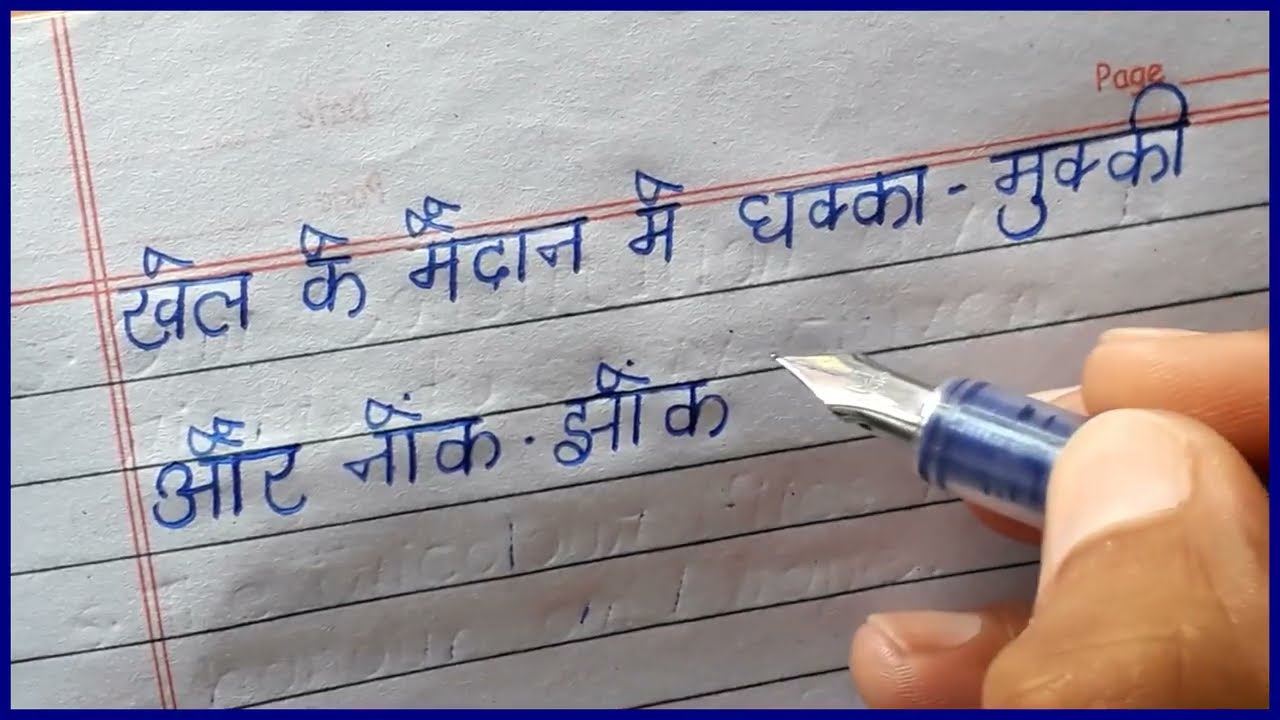 Page
खेल के मैदान मे धक्का-मुक्की
और नोंक-झोंक